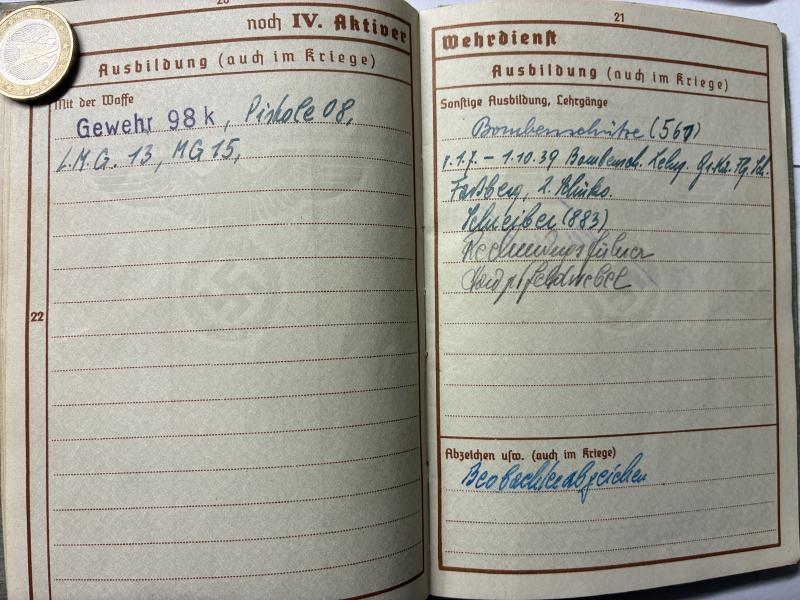 noch IV. Aktiver
Ausbildung (auch im Kriege)
Mit der Waffe
Gewehr 98k, Pistole 08,
L.M.G. 13, MG 15,
22
21
Wehrdienst
Ausbildung (auch im Kriege)
Sonstige Ausbildung, Lehrgänge
Bombenschütze (567)
1.7. - 1.10.39 Bombensch. Lehrg.
Faßberg,
Schreiber (883)
Rechnungsführer
Hauptfeldwebel
Abzeichen usw. (auch im Kriege)
Beobachterabzeichen